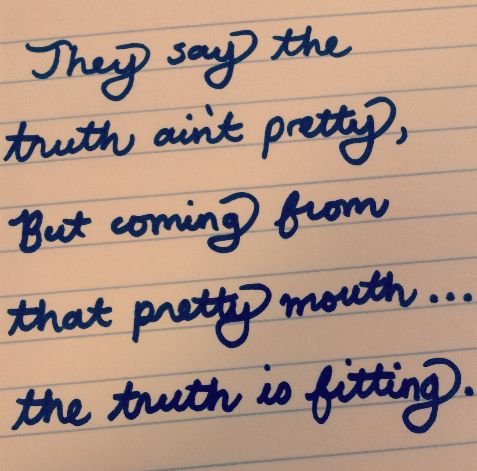 They say the
truth ain't pretty,
But coming from
that pretty mouth...
the truth is fitting.